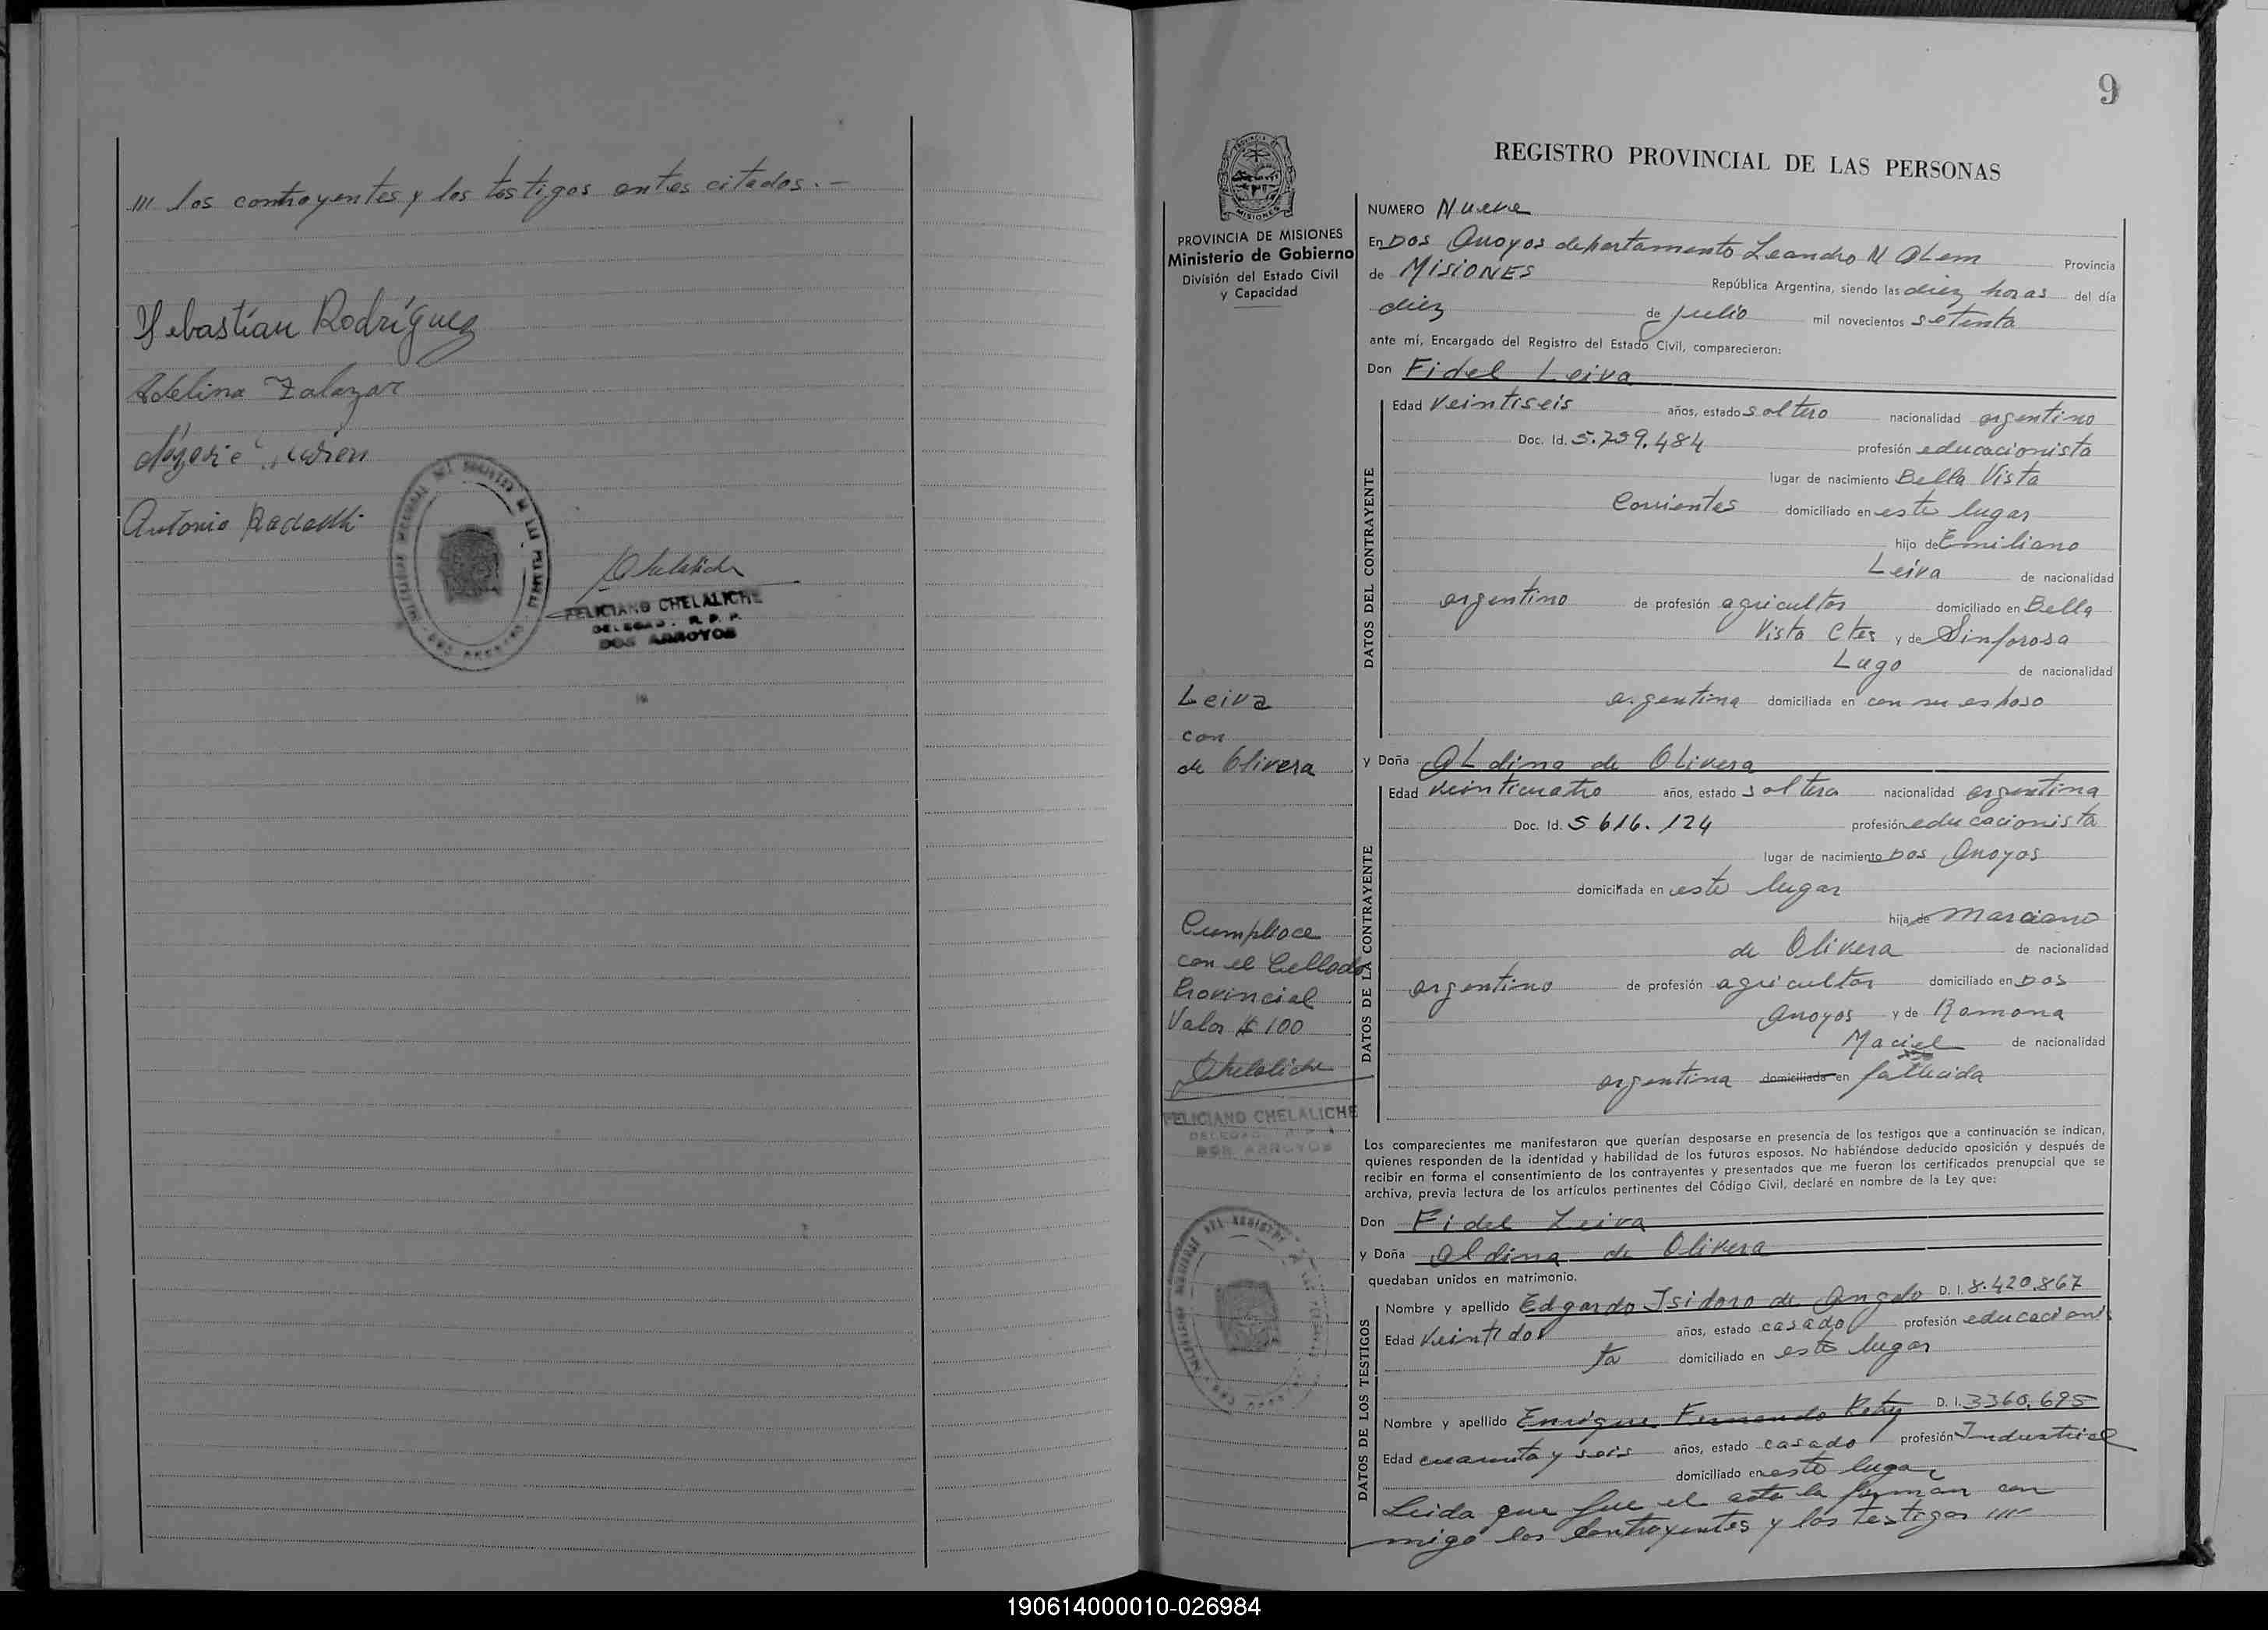 /// los contrayentes y los testigos antes citados. -
Sebastian Rodríguez
Adelina Zalazar
Antonio
Chelaliche
FELICIANO CHELALICHE
DELEGAD. R. P. P.
DOS ARROYOS
9
REGISTRO PROVINCIAL DE LAS PERSONAS
PROVINCIA DE MISIONES
Ministerio de Gobierno
División del Estado Civil
y Capacidad
NUMERO Nueve
En Dos Arroyos departamento Leandro N Alem Provincia
de MISIONES República Argentina, siendo las diez horas del día
diez de julio mil novecientos setenta
ante mí, Encargado del Registro del Estado Civil, comparecieron:
Don Fidel Leiva
DATOS DEL CONTRAYENTE
Edad Veintiseis años, estado soltero nacionalidad argentino
Doc. Id. 5.759.484 profesión educacionista
lugar de nacimiento Bella Vista
Corrientes domiciliado en este lugar
hijo de Emiliano
Leiva de nacionalidad
argentino de profesión agricultor domiciliado en Bella
Vista Ctes y de Sinforosa
Lugo de nacionalidad
argentina domiciliada en con su esposo
Leiva
con
de Olivera
y Doña Aldina de Olivera
DATOS DE LA CONTRAYENTE
Edad veinticuatro años, estado soltera nacionalidad argentina
Doc. Id. 5 616. 124 profesión educacionista
lugar de nacimiento Dos Arroyos
domiciliada en este lugar
hija de Marciano
de Olivera de nacionalidad
argentino de profesión agricultor domiciliado en Dos
Arroyos y de Ramona
Maciel de nacionalidad
argentina domiciliada en fallecida
Cumplioce
con el Cellado
Provincial
Valor $ 100
Chelaliche
FELICIANO CHELALICHE
DELEGAD. R. P. P.
DOS ARROYOS
Los comparecientes me manifestaron que querían desposarse en presencia de los testigos que a continuación se indican,
quienes responden de la identidad y habilidad de los futuros esposos. No habiéndose deducido oposición y después de
recibir en forma el consentimiento de los contrayentes y presentados que me fueron los certificados prenupcial que se
archiva, previa lectura de los artículos pertinentes del Código Civil, declaré en nombre de la Ley que:
Don Fidel Leiva
y Doña Aldina de Olivera
quedaban unidos en matrimonio.
DATOS DE LOS TESTIGOS
Nombre y apellido Edgardo Isidoro de Angelo D. I. 8.420.867
Edad Veintidos años, estado casado profesión educacionis
ta domiciliado en este lugar
Nombre y apellido Enrique Fernando D. I. 3360.695
Edad cuarenta y seis años, estado casado profesión Industrial
domiciliado en este lugar
Leida que fue el acta la firman con
migo los contrayentes y los testigos ///
190614000010-026984